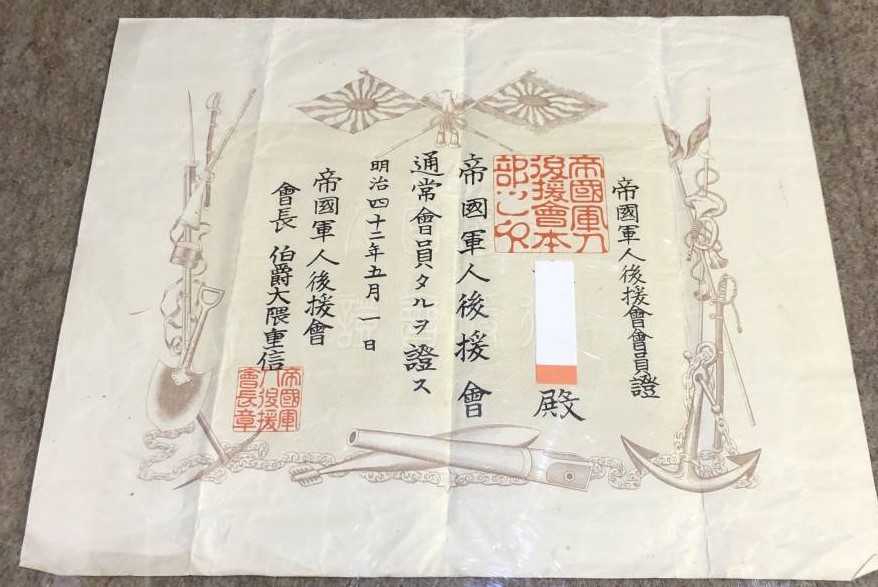 帝國軍人後援會會員證
殿
帝國軍人後援會
通常會員タルヲ證ス
明治四十二年五月一日
帝國軍人後援會
會長 伯爵大隈重信
帝國軍人
後援會本
部之印
帝國軍
人後援
會長章